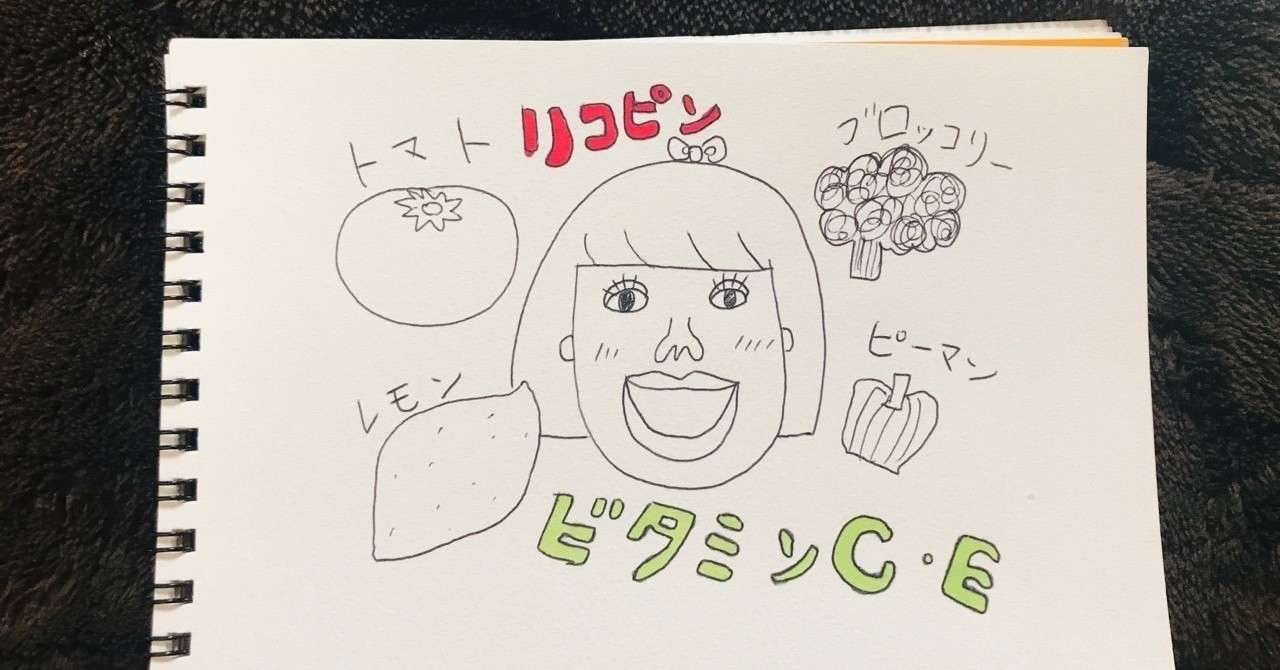 リコピン
トマト
ブロッコリー
レモン
ピーマン
ビタミンC・E